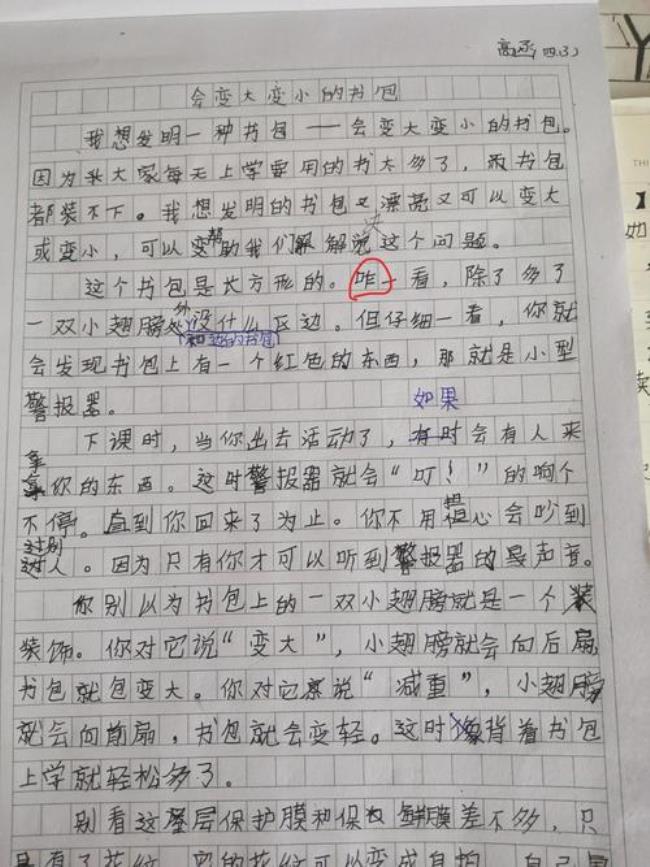 高函 四(3)
会变大变小的书包
我想发明一种书包——会变大变小的书包。
因为大家每天上学要用的书太多了，书包
都装不下。我想发明的书包又漂亮又可以变大
或变小，可以帮助我们解决这个问题。
这个书包是长方形的。咋一看，除了多了
一双小翅膀外没什么区边。但仔细一看，你就
和边的书包
会发现书包上有一个红色的东西，那就是小型
警报器。
下课时，当你出去活动了，如果会有人来
拿你的东西。这时警报器就会“叮！”的响个
不停。直到你回来了为止。你不用担心会吵到
别人。因为只有你才可以听到警报器的声音。
你别以为书包上的一双小翅膀就是一个
装饰。你对它说“变大”，小翅膀就会向后扇
书包就包变大。你对它说“减重”，小翅膀
就会向前扇，书包就会变轻。这时背着书包
上学就轻松多了。
别看这层保护膜和保鲜膜差不多，只
有了花纹，它的花纹可以变成自